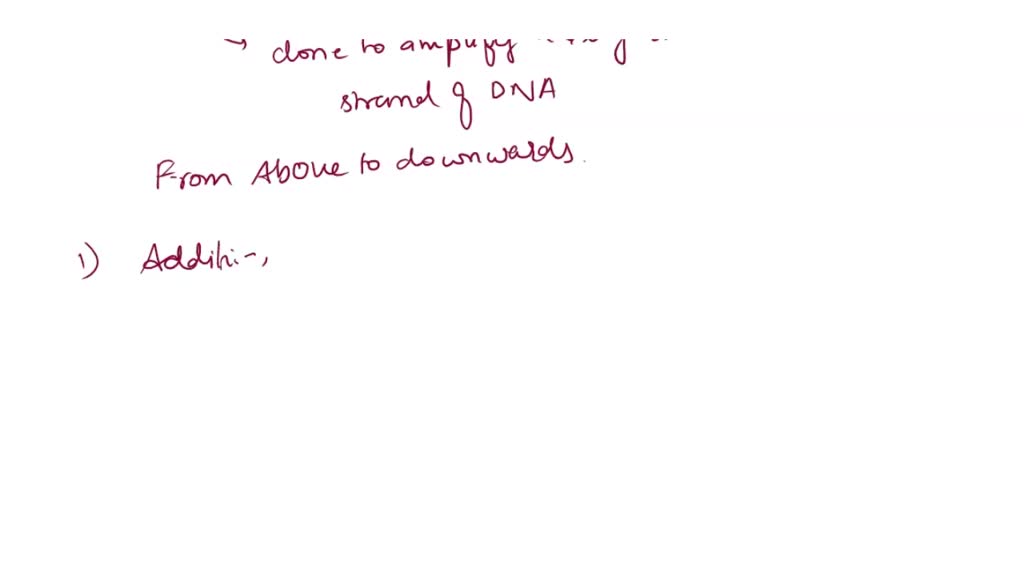 → done to amplify
strand of DNA
From Above to downwards.
1) Additi-,